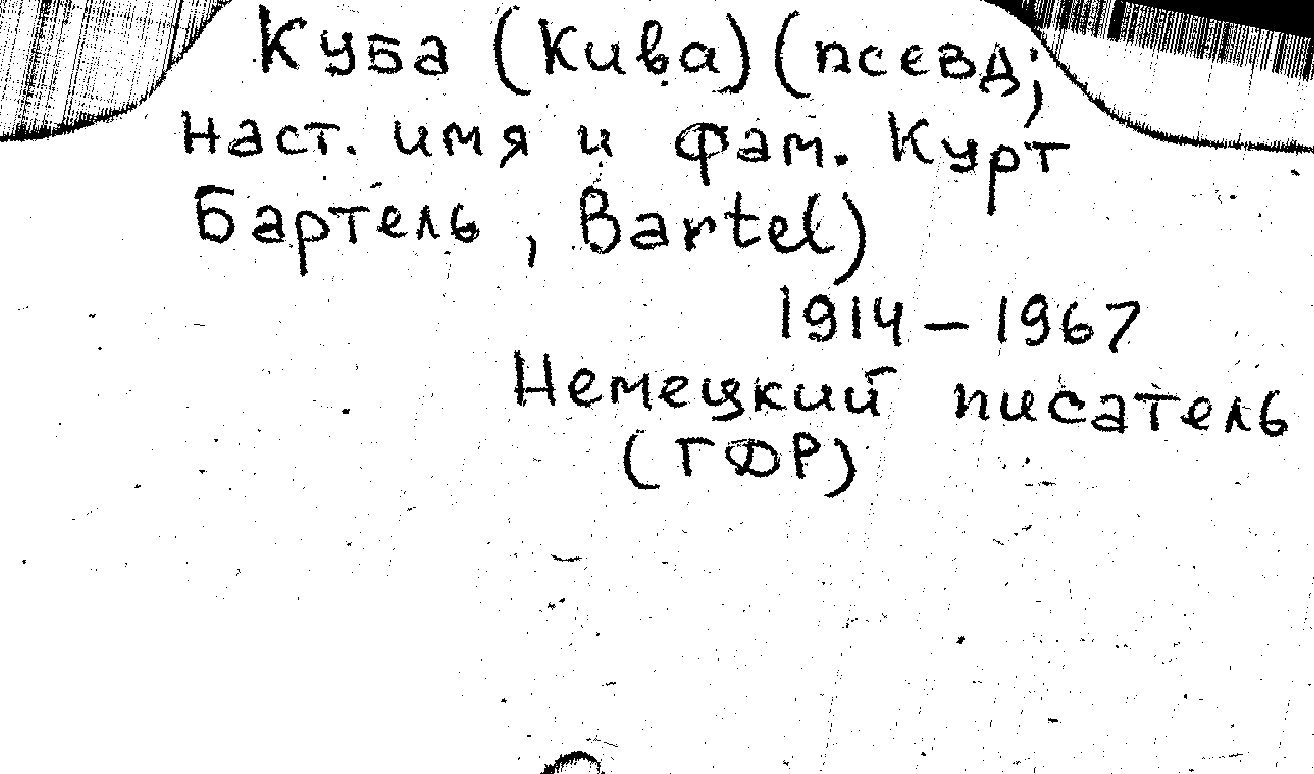 Куба (Кива) (псевд.;
наст. имя и фам. Курт
Бартель, Bartel)
1914 – 1967
Немецкий писатель
(ГДР)